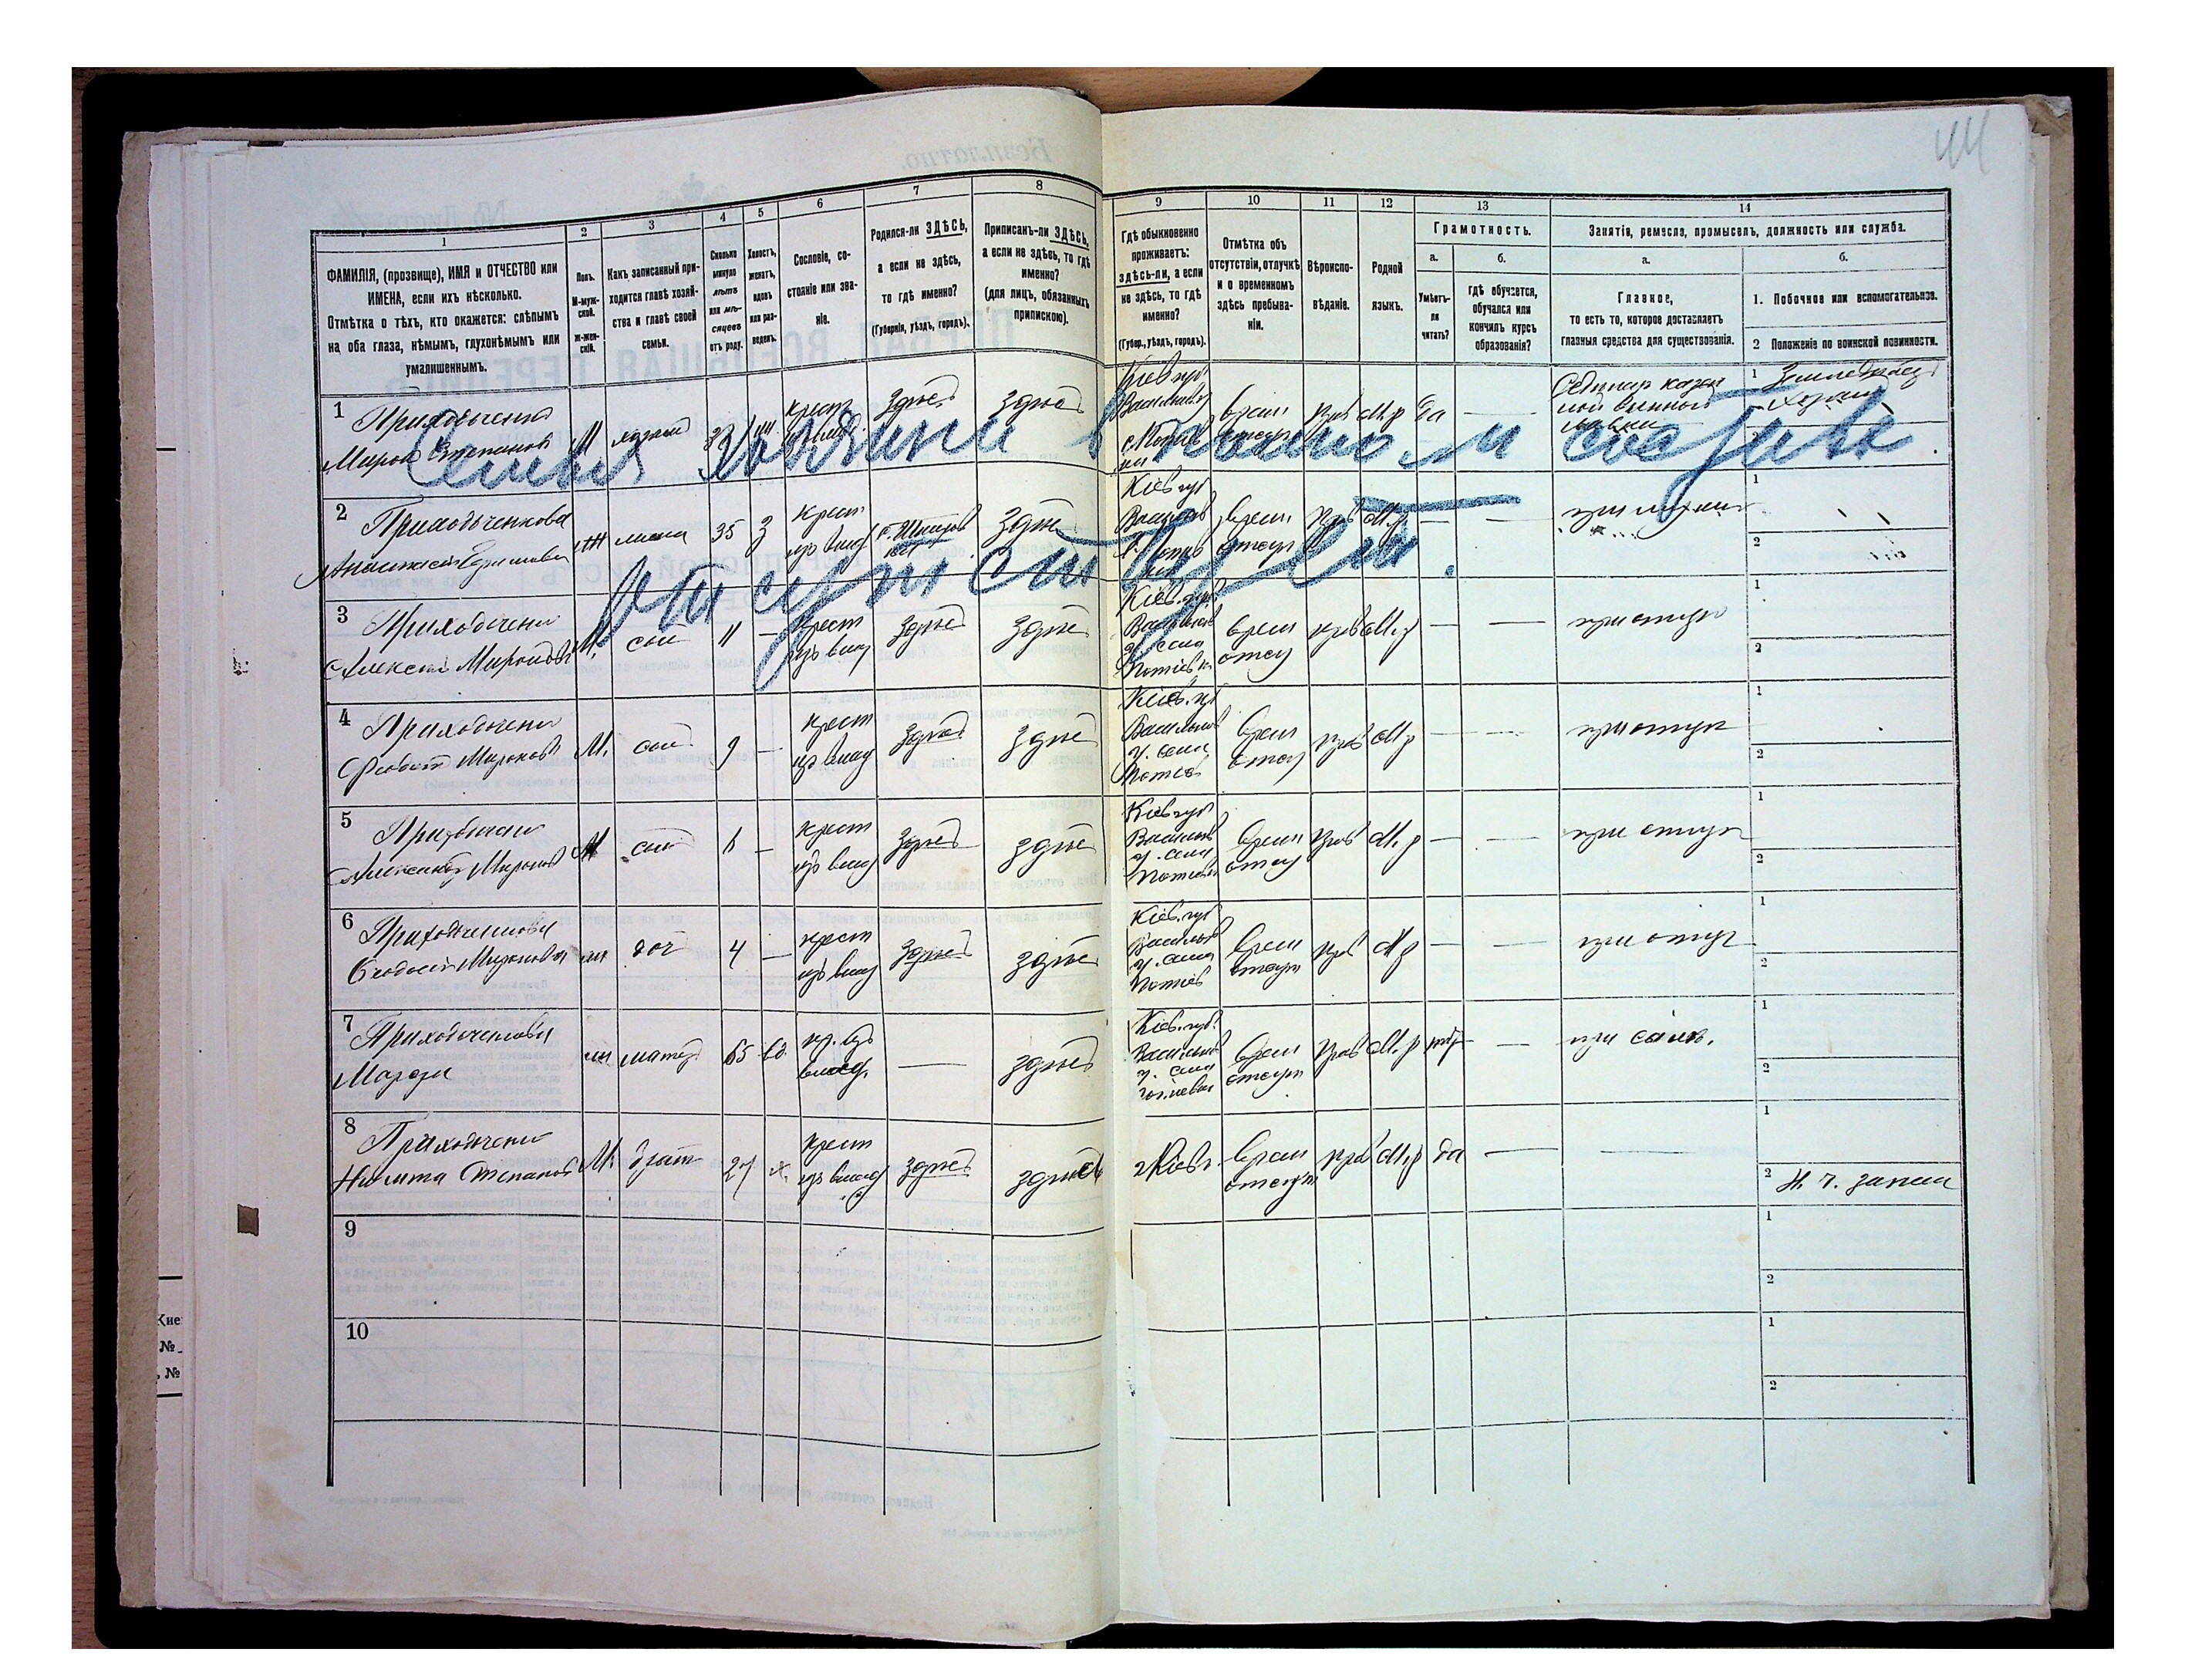 44
1
2
3
4
5
6
7
8
9
10
11
12
13
14
ФАМИЛІЯ, (прозвище), ИМЯ и ОТЧЕСТВО или
ИМЕНА, если ихъ нѣсколько.
Отмѣтка о тѣхъ, кто окажется: слѣпымъ
на оба глаза, нѣмымъ, глухонѣмымъ или
умалишеннымъ.
Полъ.
М-муж-
ской.
Ж-жен-
скій.
Какъ записанный при-
ходится главѣ хозяй-
ства и главѣ своей
семьи.
Сколько
минуло
лѣтъ
или мѣ-
сяцевъ
отъ роду.
Холостъ,
женатъ,
вдовъ
или раз-
веденъ.
Сословіе, со-
стояніе или зва-
ніе.
Родился-ли ЗДѢСЬ,
а если не здѣсь,
то гдѣ именно?
(Губернія, уѣздъ, городъ).
Приписанъ-ли ЗДѢСЬ,
а если не здѣсь, то гдѣ
именно?
(для лицъ, обязанныхъ
припискою).
Гдѣ обыкновенно
проживаетъ:
здѣсь-ли, а если
не здѣсь, то гдѣ
именно?
(Губер., уѣздъ, городъ).
Отмѣтка объ
отсутствіи, отлучкѣ
и о временномъ
здѣсь пребыва-
ніи.
Вѣроиспо-
вѣданіе.
Родной
языкъ.
Грамотность.
а.
Умѣетъ-
ли
читать?
б.
гдѣ обучается,
обучался или
кончилъ курсъ
образованія?
Занятія, ремесло, промыселъ, должность или служба.
а.
Главное,
то есть то, которое доставляетъ
главныя средства для существованія.
б.
1. Побочное или вспомогательное.
2 Положеніе по воинской повинности.
1 Приходченко
Миронъ Степановъ М хозяинъ крест здѣсь здѣсь
Кіев губ
врем отсут прав М.р да
1 Земледѣлец
хозяин
Семья хозяина в полном составе
отсутствует.
2 Приходченкова
Анастасія Ж жена 35 З крест
изъ влад здѣсь
Кіев губ
Васильк
врем отсут прав М.р — —
1
2
3 Приходченко
Алексей Миронов М. сын 11 — крест
изъ влад здѣсь здѣсь
Кіев. губ
Васильков
у. села
Потіевк
врем отсу прав М.р — — при отцѣ
1
2
4 Приходченко
Миронов М. сын 9 — крест
изъ влад здѣсь здѣсь
Кіев. губ
Васильков
у. села
Потіев
врем отсу прав М.р — — при отцѣ
1
2
5 Приходченко
Александр Миронов М сын — крест
изъ влад здѣсь здѣсь
Кіев губ
Васильков
у. села
Потіев
врем отсу прав М.р — — при отцѣ
1
2
6 Приходченкова
Феодосія Миронова ж доч 4 — крест
изъ влад здѣсь здѣсь
Кіев. губ
Васильков
у. села
Потіев
врем отсут прав М р — — при отцѣ
1
2
7 Приходченкова
ж матер 65 вд. кр. изъ
влад. — здѣсь
Кіев. губ.
Васильков
у. села
врем отсут прав М.р — при сынѣ.
1
2
8 Приходченко
Никита Степанов М. брат 27 х. крест
изъ влад здѣсь здѣсь
г Кіевъ. врем отсут прав М.р да — —
1
2 Н. ч. запаса
9
1
2
10
1
2